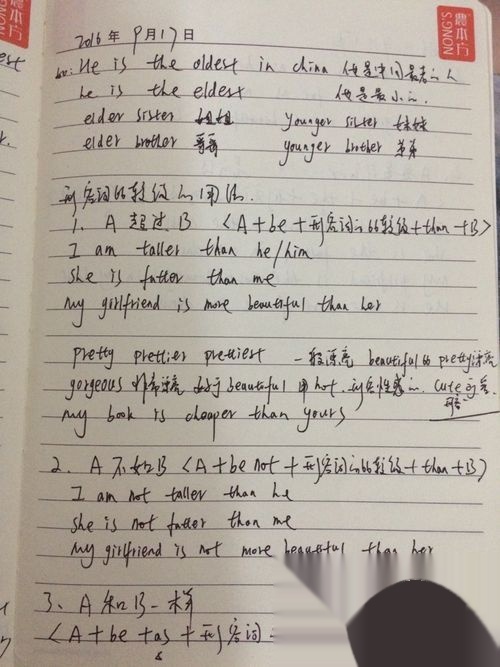 農本方
S.GNON
農本方
S.GNON
2016年 9月17日
He is the oldest in china 他是中国最老的人
he is the eldest 他是最小的.
elder sister 姐姐 younger sister 妹妹
elder brother 哥哥 younger brother 弟弟
形容词的比较级的用法.
1、A 超过 B <A+be+形容词的比较级+than+B>
I am taller than he/him
she is fatter than me
my girlfriend is more beautiful than her
pretty prettier prettiest 一般漂亮 beautiful比pretty漂亮
gorgeous 非常漂亮 beautiful 用hot 形容性感的. cute 可爱.
my book is cheaper than yours
2、A 不如B <A+be not+形容词的比较级+than+B>
I am not taller than he
she is not fatter than me
my girlfriend is not more beautiful than her
3、A 和B一样
<A+be+as+形容词